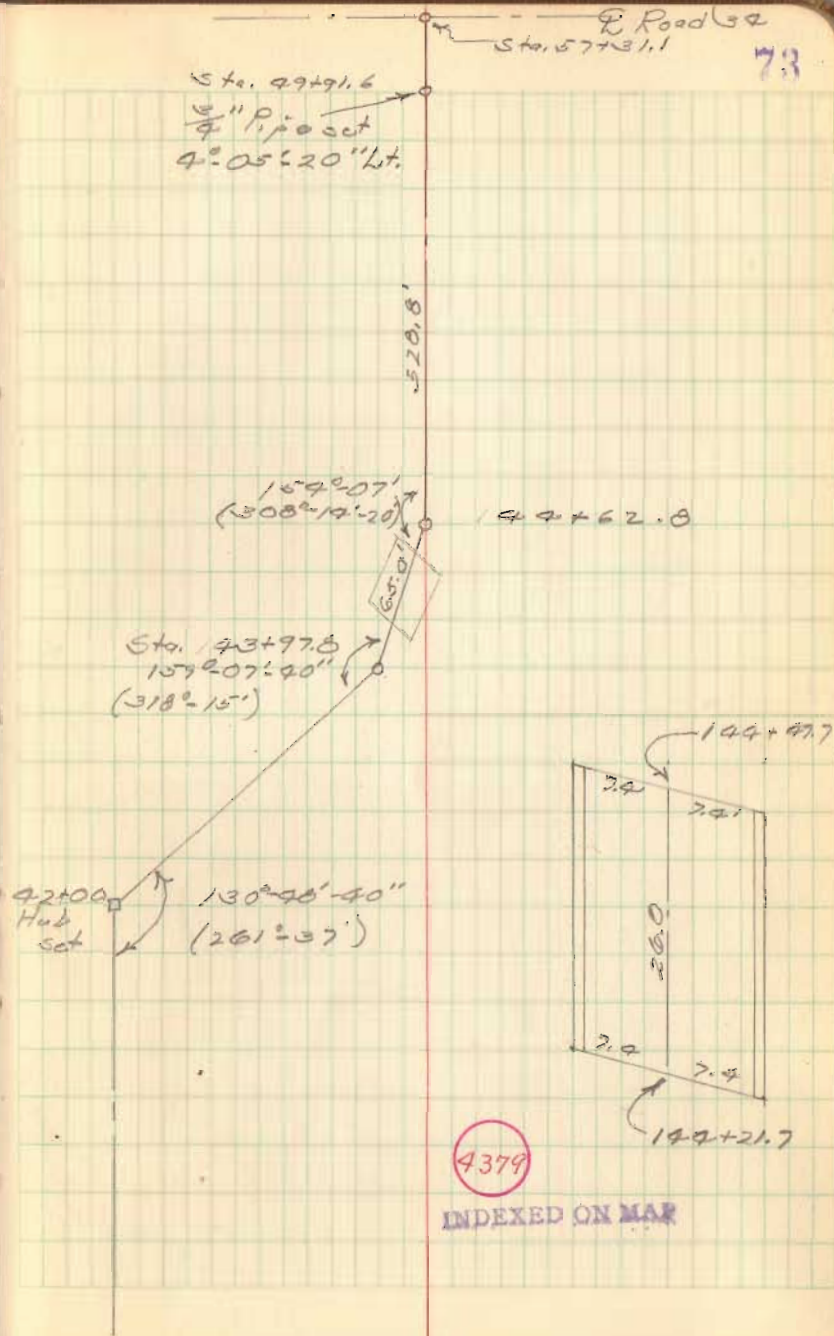 ℄ Road 34
Sta. 57+31.1
73
Sta. 49+91.6
3/4" Pipe set
4°-05'-20" Lt.
528.8'
154°-07'
(308°-14'-20")
44+62.8
65.0'
Sta. 43+97.8
159°-07'-40"
(318°-15')
144+47.7
7.4
7.4'
42+00
Hub
set
130°-48'-40"
(261°-37')
26.0
7.4
7.4
144+21.7
4379
INDEXED ON MAP